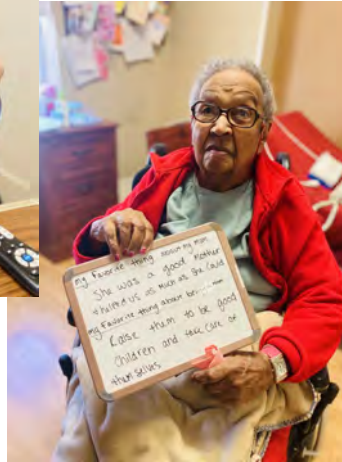 my Favorite thing about my mom
She was a good mother
& helped us as much as she could
my Favorite thing about being mom
Raise them to be good
children and take care of
themselves